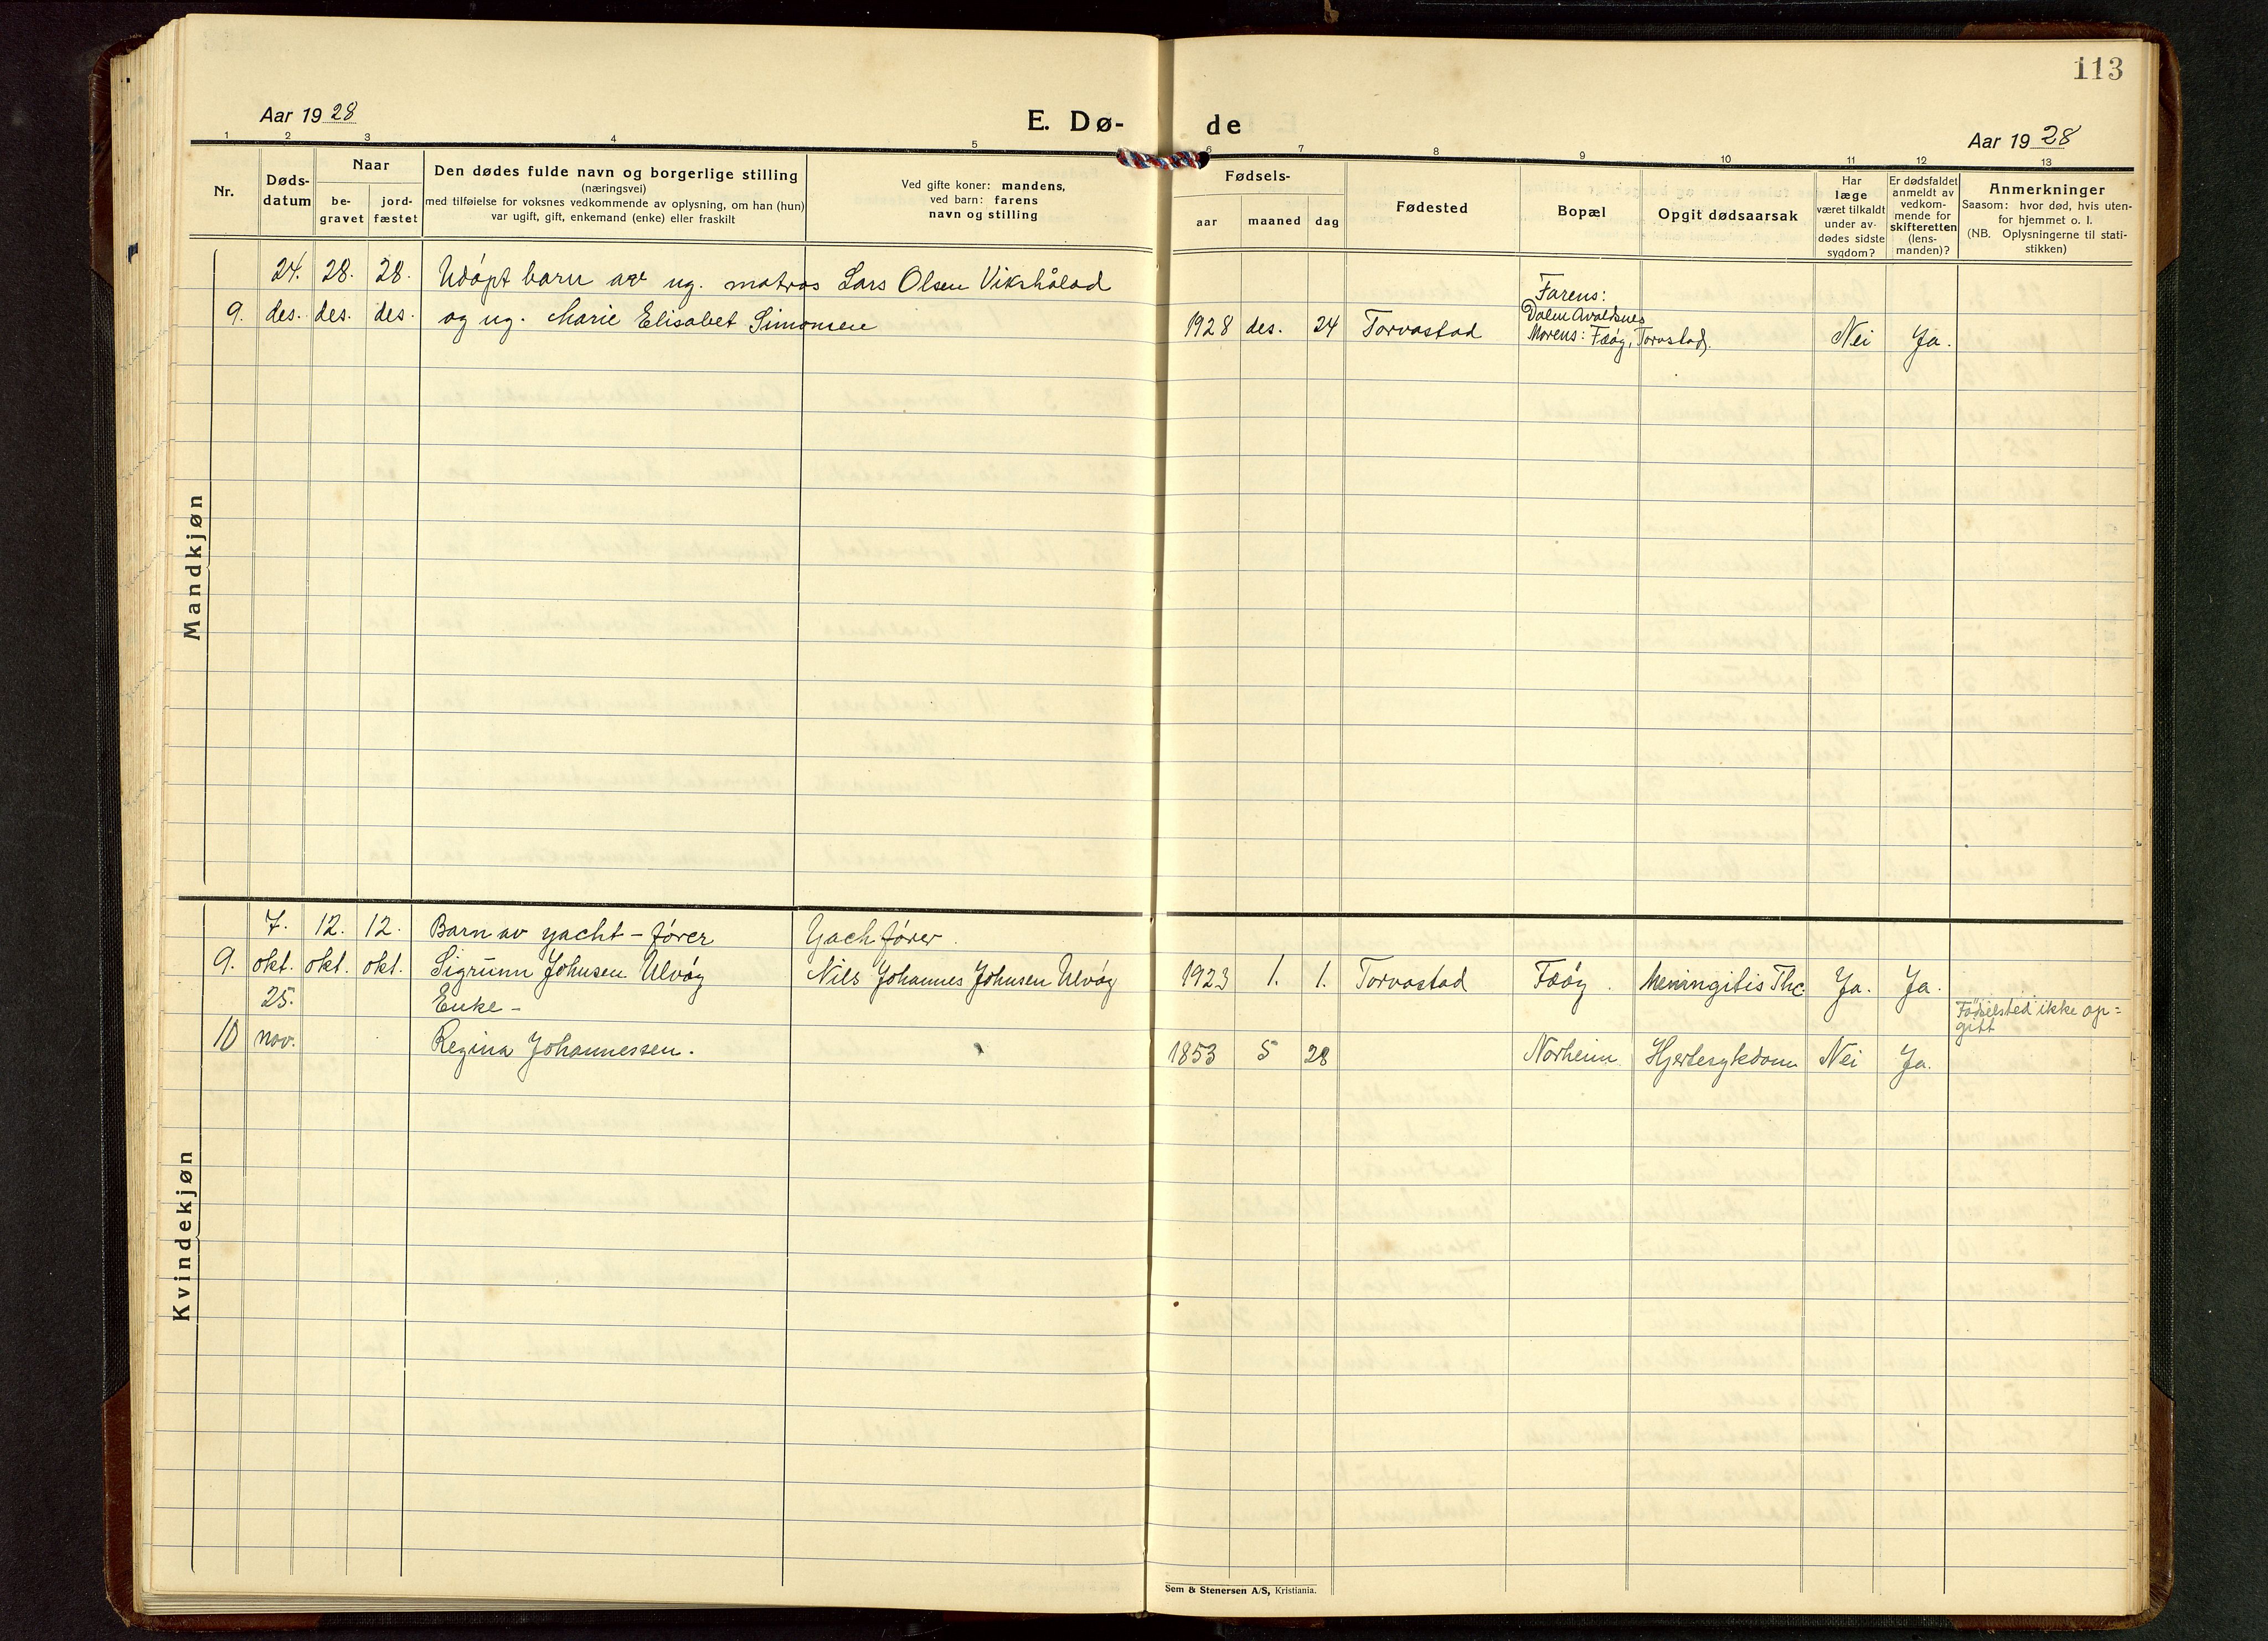 113
Aar 1928
E. Dø-
de
Aar 1928
1 2 3 4 5 6 7 8 9 10 11 12 13
Nr.
Døds-
datum
Naar
be-
gravet
jord-
fæstet
Den dødes fulde navn og borgerlige stilling
(næringsvei)
med tilføielse for voksnes vedkommende av oplysning, om han (hun)
var ugift, gift, enkemand (enke) eller fraskilt
Ved gifte koner: mandens,
ved barn: farens
navn og stilling
Fødsels-
aar maaned dag
Fødested
Bopæl
Opgit dødsaarsak
Har
læge
været tilkaldt
under av-
dødes sidste
sygdom?
Er dødsfaldet
anmeldt av
vedkom-
mende for
skifteretten
(lens-
manden)?
Anmerkninger
Saasom: hvor død, hvis uten-
for hjemmet o. l.
(NB. Oplysningerne til stati-
stikken)
Mandkjøn
24. 28. 28. Udøpt barn av ug. matros Lars Olsen Vikshåland
9. des. des. des. og ug. Marie Elisabet Simonsen
1928 des. 24 Torvastad
Farens:
Dalen Avaldsnes
Morens: Fæøy, Torvastad.
Nei Ja.
Kvindekjøn
7. 12. 12. Barn av yacht-fører Yachfører.
9. okt. okt. okt. Sigrunn Johnsen Ulvøy Nils Johannes Johnsen Ulvøy 1923 1. 1. Torvastad Fæøy. Meningitis Thc. Ja. Ja.
25. Enke-
Fødselsted ikke op=
gitt
10 nov. Regina Johannessen. 1853 5 28 Norheim Hjertesykdom Nei Ja.
Sem & Stenersen A/S, Kristiania.